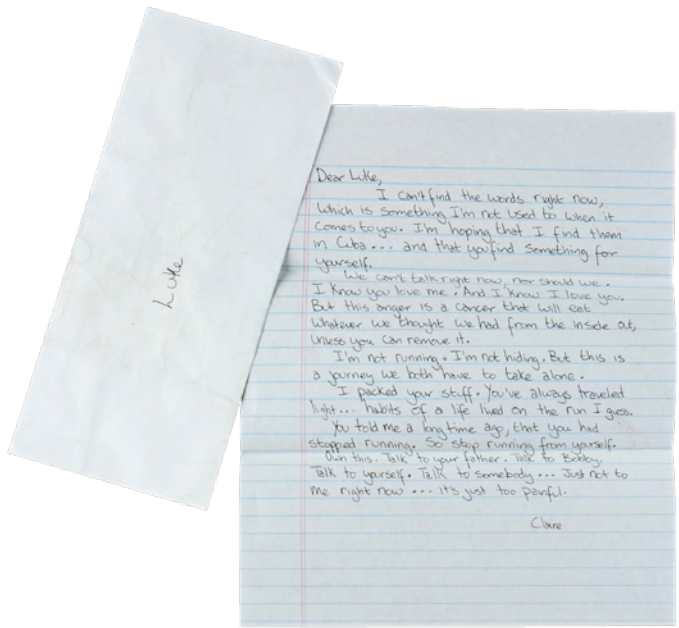 Luke
Dear Luke,
I can't find the words right now,
which is something I'm not used to when it
comes to you. I'm hoping that I find them
in Cuba... and that you find something for
yourself.
We can't talk right now, nor should we.
I know you love me. And I know I love you.
But this anger is a cancer that will eat
whatever we thought we had from the inside out,
unless you can remove it.
I'm not running. I'm not hiding. But this is
a journey we both have to take alone.
I packed your stuff. You've always traveled
light... habits of a life lived on the run I guess.
You told me a long time ago, that you had
stopped running. So stop running from yourself.
Own this. Talk to your father. Talk to Bobby.
Talk to yourself. Talk to somebody... Just not to
me right now... it's just too painful.
Claire